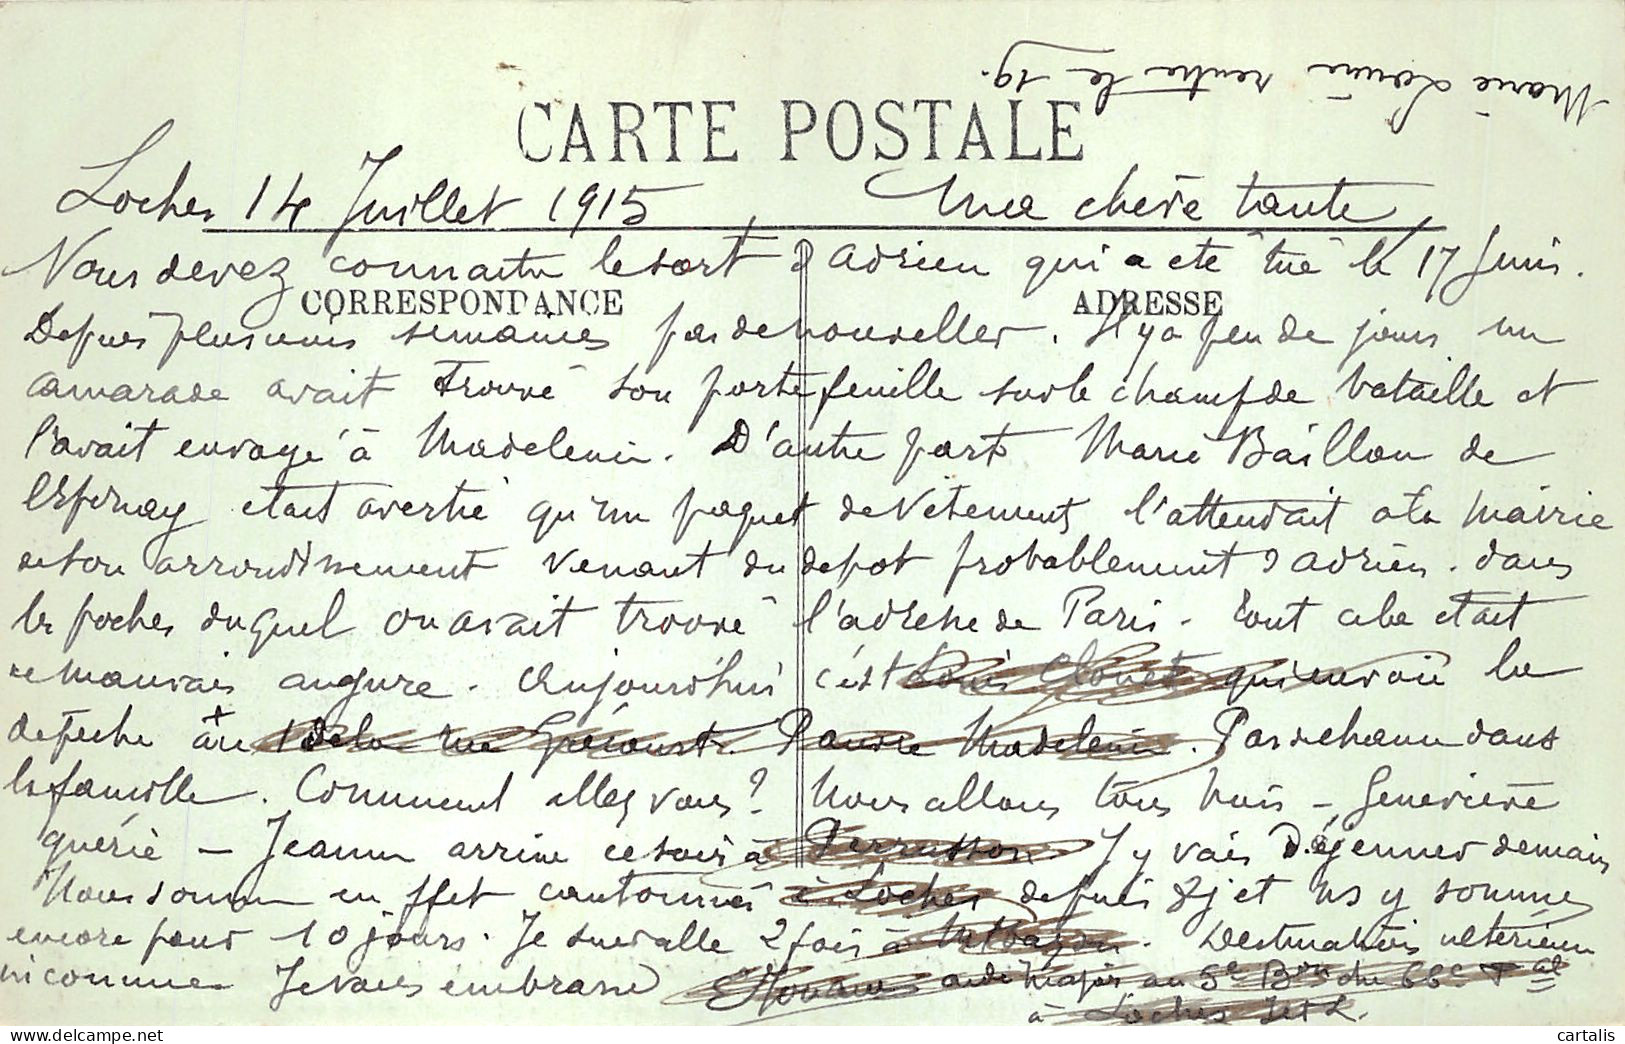 Marie Louise rentre le 19.
CARTE POSTALE
Loches 14 Juillet 1915, Ma chère tante,
Vous devez connaitre le sort d'Adrien qui a été tué le 17 Juin.
CORRESPONDANCE ADRESSE
Depuis plusieurs semaines pas de nouvelles. Il y a peu de jours un
camarade avait trouvé son portefeuille sur le champ de bataille et
l'avait envoyé à Madeleine. D'autre part Marie Baillou de
était avertie qu'un paquet de vêtements l'attendait à la Mairie
de son arrondissement venant du depot probablement d'Adrien. dans
les poches duquel on avait trouvé l'adresse de Paris. Tout cela était
de mauvais augure. Aujourd'hui c'est Louis Clouet qui envoie la
depeche de la rue Pauvre Madeleine. Pas de chance dans
la famille. Comment allez vous? Nous allons tous bien - Geneviève
guérie - Jeanne arrive ce soir à Perrusson J'y vais déjeuner demain
Nous sommes en effet cantonnés à Loches depuis 8j et ns y sommes
encore pour 10 jours. Je suis allé 2 fois à Destination ultérieure
inconnue Je vous embrasse aide Major au 5e Bon du 66e
à Loches I et L.
cartalis